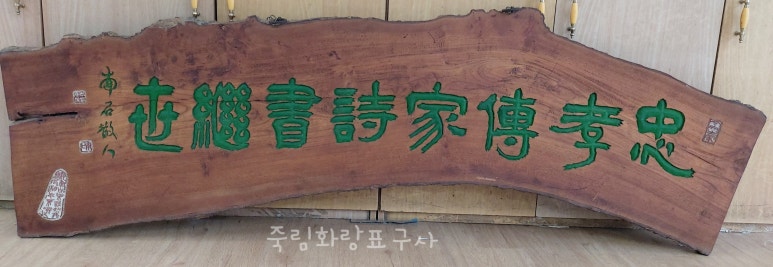 忠孝傳家詩書繼世
南石散人
죽림화랑표구사